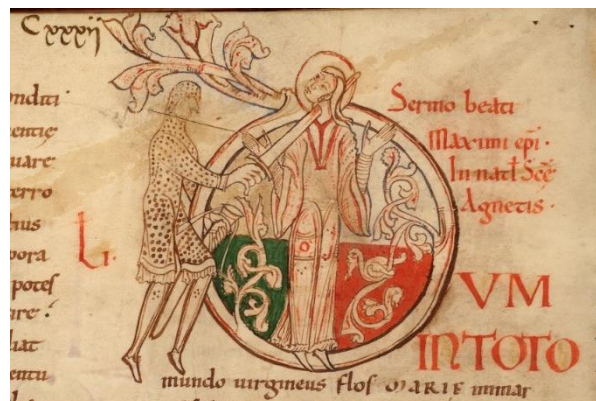 Cxxxij
nditi·
entię
uare
erro
hius
pora
potes
ire·
liat
entu
L.
Sermo beati
Maximi epi·
In natl Scę
Agnetis·
VM
IN TOTO
mundo virgineus flos MARIE immar